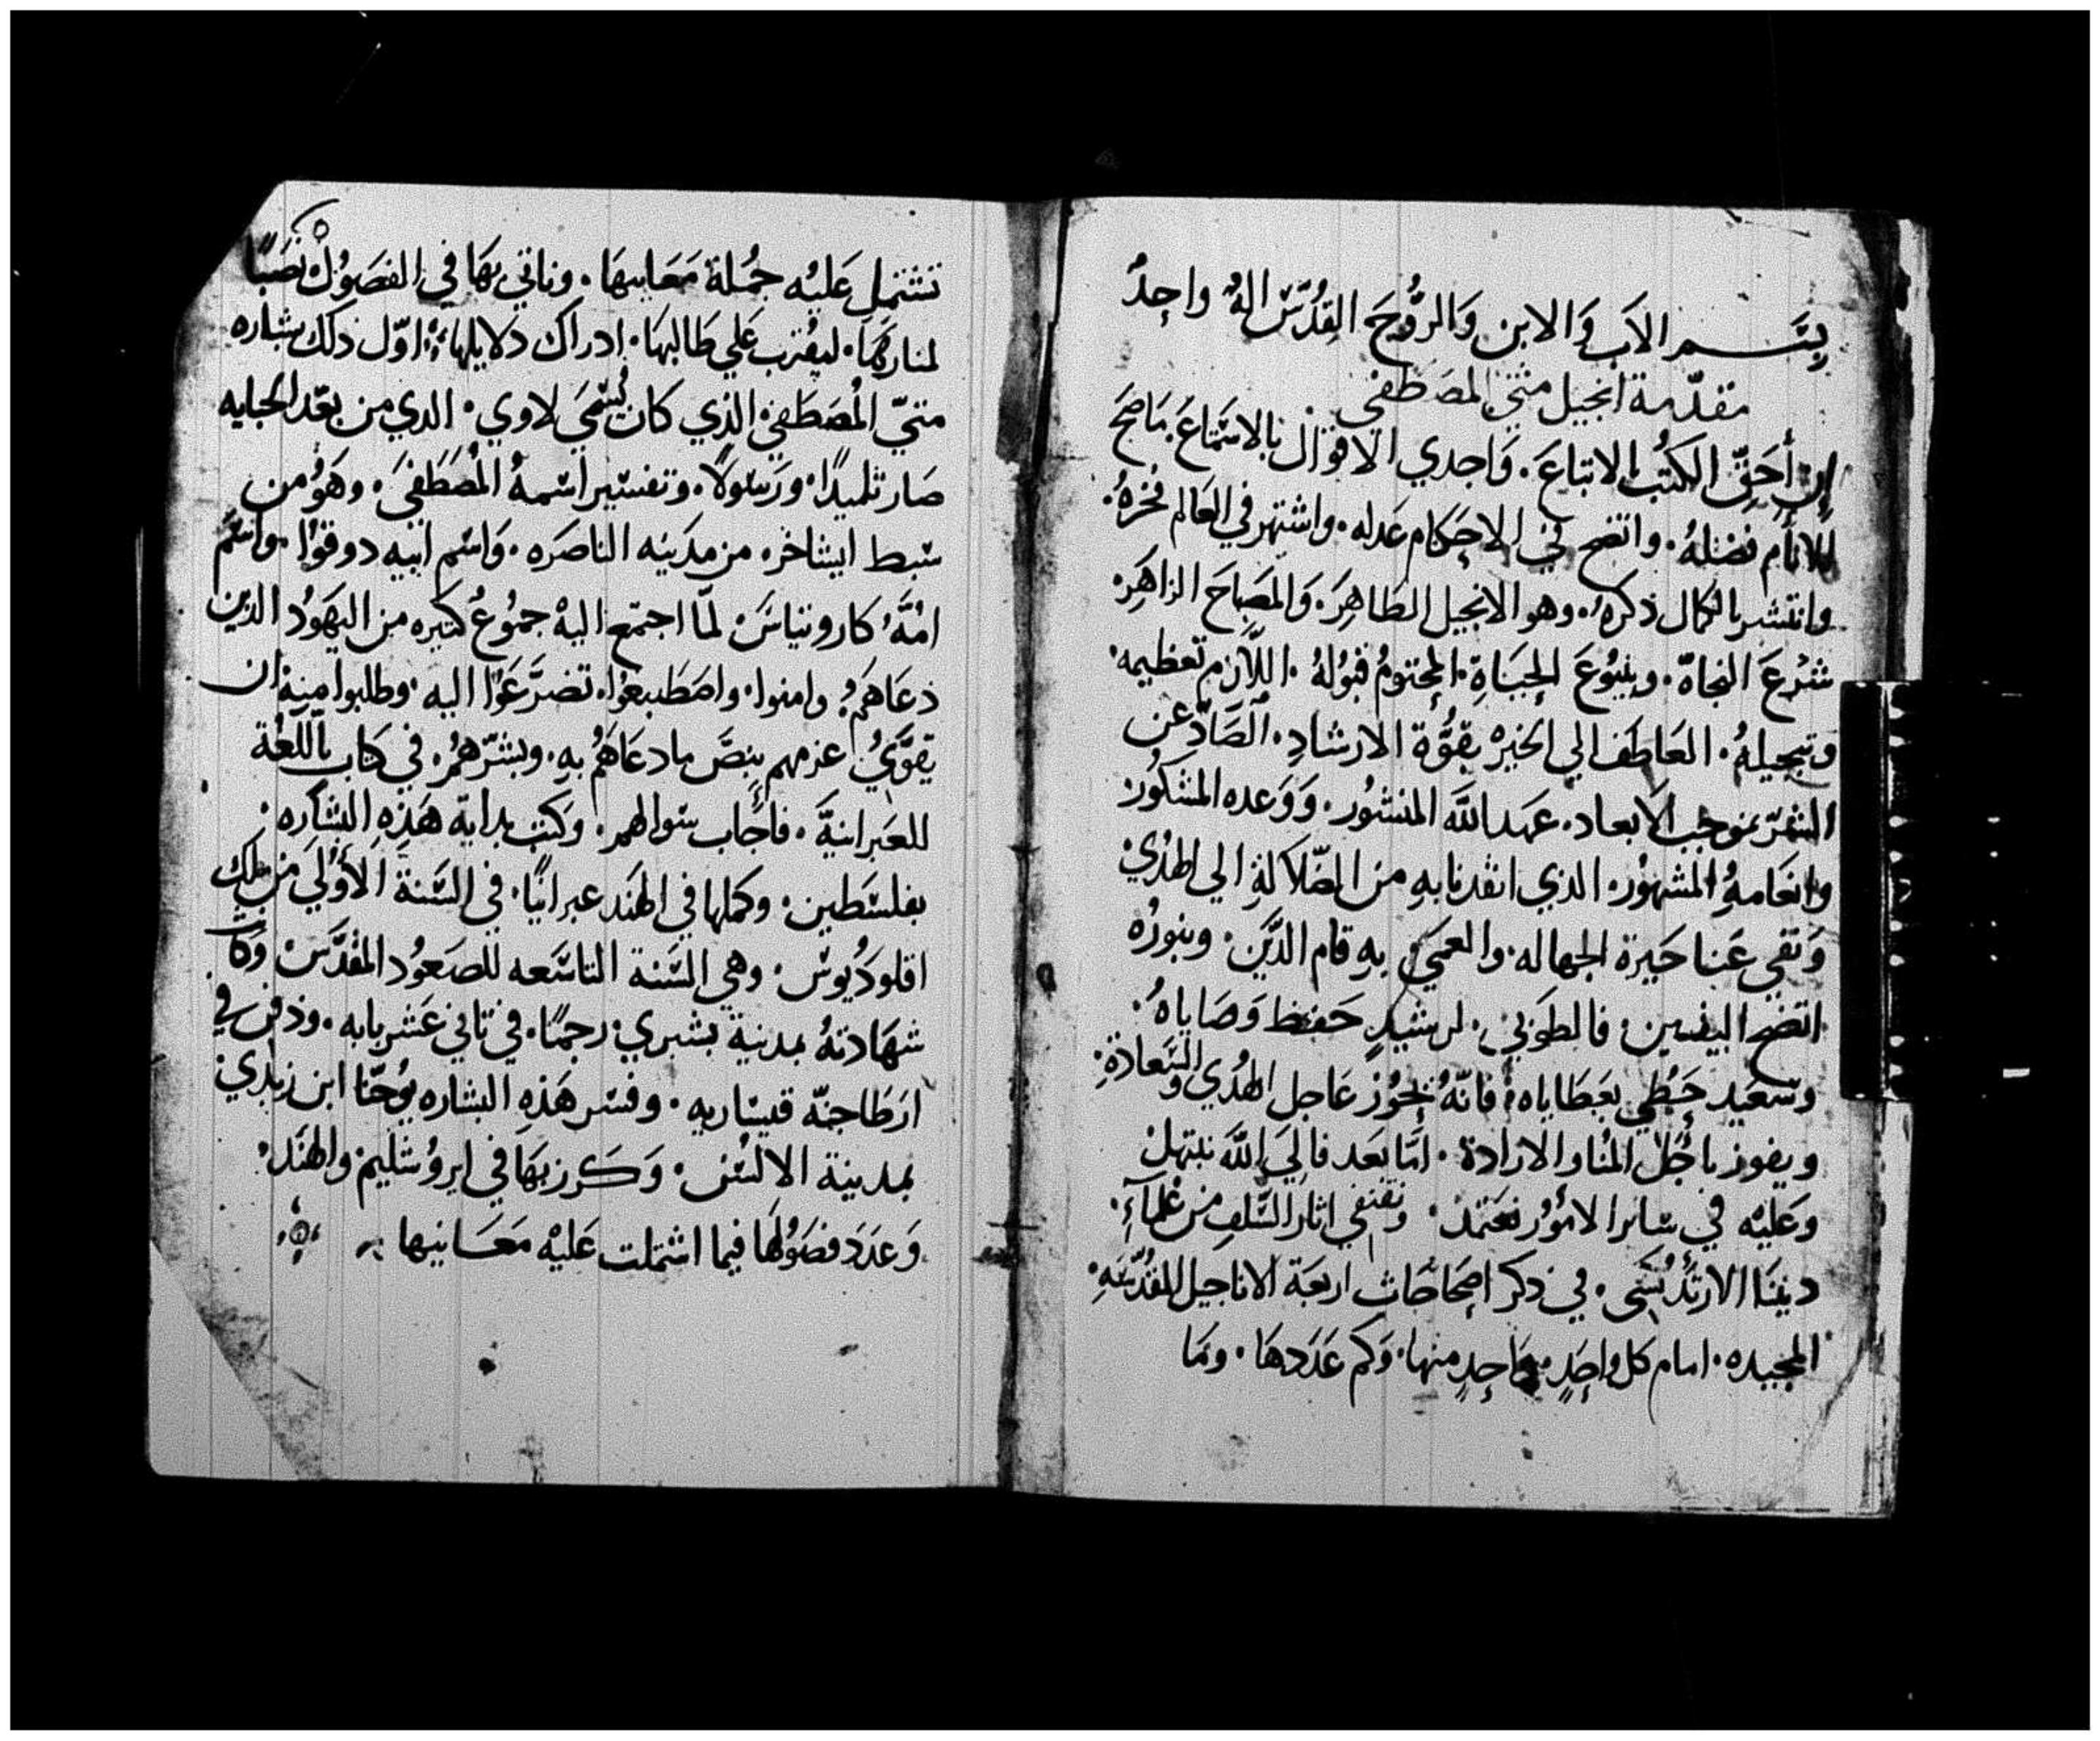 بِسَم الاَب وَالابن وَالرُّوحَ القِدُسَّ الهٌ واحِدٌ
مقدّمة انجيل متي المصَطَفي
إِن أَحَقّ الكتُب بالاتباعَ. وَاجدي الاقوال بالاسَتماعَ. مَا صَحَ
للانأم فضلهُ. واتضح في الاحِكام عَدله. واشتهر في العَالم فخرهُ.
وانتشر بالكمال ذكرهُ. وهو الانجيل الطَاهِرَ. وَالمصِباحَ الزاهَرِ.
شرَعَ النجاة. وينبُوعَ الحِيَاةِ. المحتومُ قبوُلهُ. اللاَّزم تعظيمه.
وتبجيلهُ. العَاطَف الي الخيرْ بقوُّة الارشادِ. الصَادّ عن
الشرّ بموجب الابعاد. عهَد اللَه المنشوُر. وَوَعده المشكُور
وانعَامهُ المشهوُر. الذي انقدنا بهِ من الضّلاَلةِ الي الهُديْ
وَنفي عَنا حَيرة الجهاله. والعمي بهِ قام الدّيَن. وبنورُه
اتضح اليقين. فالطوَبيْ. لرشيدٍ حَفظ وَصَاياهُ.
وسَعَيد حَظي بعَطَاياه. فانّهُ يحوُز عَاجل الهُدي والسَّعادة.
ويفوز باجُلَ المُنا والارادة. امّا بعَد فاليَ اللَه نبتهلْ
وعَليْه في سَائر الاموُر نعَتمدْ. ونقتفي اثار السَّلفِ من عُلمآءِ.
ديننَا الارتدُكسَي. في ذكر اصِحَاحَاث اربعَة الاناجيل المقدُسّهِ.
المجيده. امام كل واحِدٍ واحِدٍ منها. وَكم عَدَدهَا. ومَا
تشتمل عَليْه جمُلة مَعَانيهَا. وناتي بهَا في الفصَوُل نصَبًا
لمنارهَا. ليقُرب عَلي طَالبهَا. ادراك دَلايلهاَ. اوّل ذلك بشاره
متيّ المُصَطَفي الذي كان يُسَمَيَ لاوي. الدي من بعَد الجبايه
صَار تلميدًا. ورَسَولاً. وتفسَير اسَمهُ المُصَطَفيَ. وهَوُ من
سَبط ايشاخر. من مدَينه الناصَره. وَاسَم ابيه دوقوُا. واسَم
امُّهُ كاروتياسَ. لمّا اجتمَع اليهْ جموُعُ كتيره من اليهَوُد الذين
دعَاهَمُ. وامنوا. واصَطَبعوُا. تضرَّعَوا اليه. وطلبوا منهْ ان
يقوَّيُ عزمهم بنِصَّ مادعَاهَمُ بهِ. وبشرّهمُ. في كتاب باللّغَة
للعَبرانيةَ. فأَجَاب سَوالهم. وَكتب بداية هَذِهِ البشاره.
بفلسَطين. وكملها في الهنَد عبرانيًا. في السَنة الأوَليَ من ملك
اقلودُيوسَ. وهي السَنة التاسَعه للصَعوُد المقُدَّسَ وكانت
شهَادتهُ بمدينة بشبري. رجمًا. في تاني عَشر بابه. ودفن في
ارطَاجنّه قيسَاريه. وفسَر هَذهِ البشاره يوُحَنّا ابن زبدي
بمدينة الالسُن. وَكَرز بهَا في ايروُشليم. والهنَد.
وَعدَد فصَوُلهَا فيما اشتملت عَليْه مَعَانيها